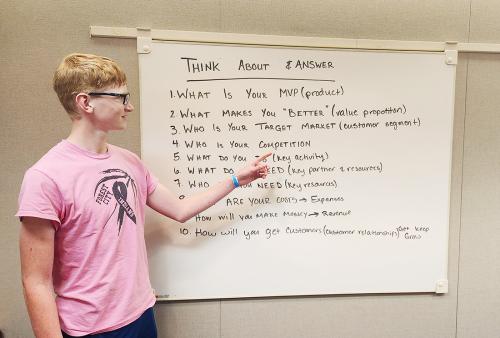 THINK ABOUT & ANSWER
1. WHAT IS YOUR MVP (product)
2. WHAT MAKES YOU "BETTER" (value proposition)
3. WHO IS YOUR TARGET MARKET (customer segment)
4 WHO IS YOUR COMPETITION
5. WHAT DO YOU (key activity)
6. WHAT DO NEED (key partner & resources)
7. WHO YOU NEED (key resources)
ARE YOUR COSTS → Expenses
HOW will you MAKE MONEY → Revenue
10. HOW will you get customers (customer relationships) Get keep Grow
FOREST CITY